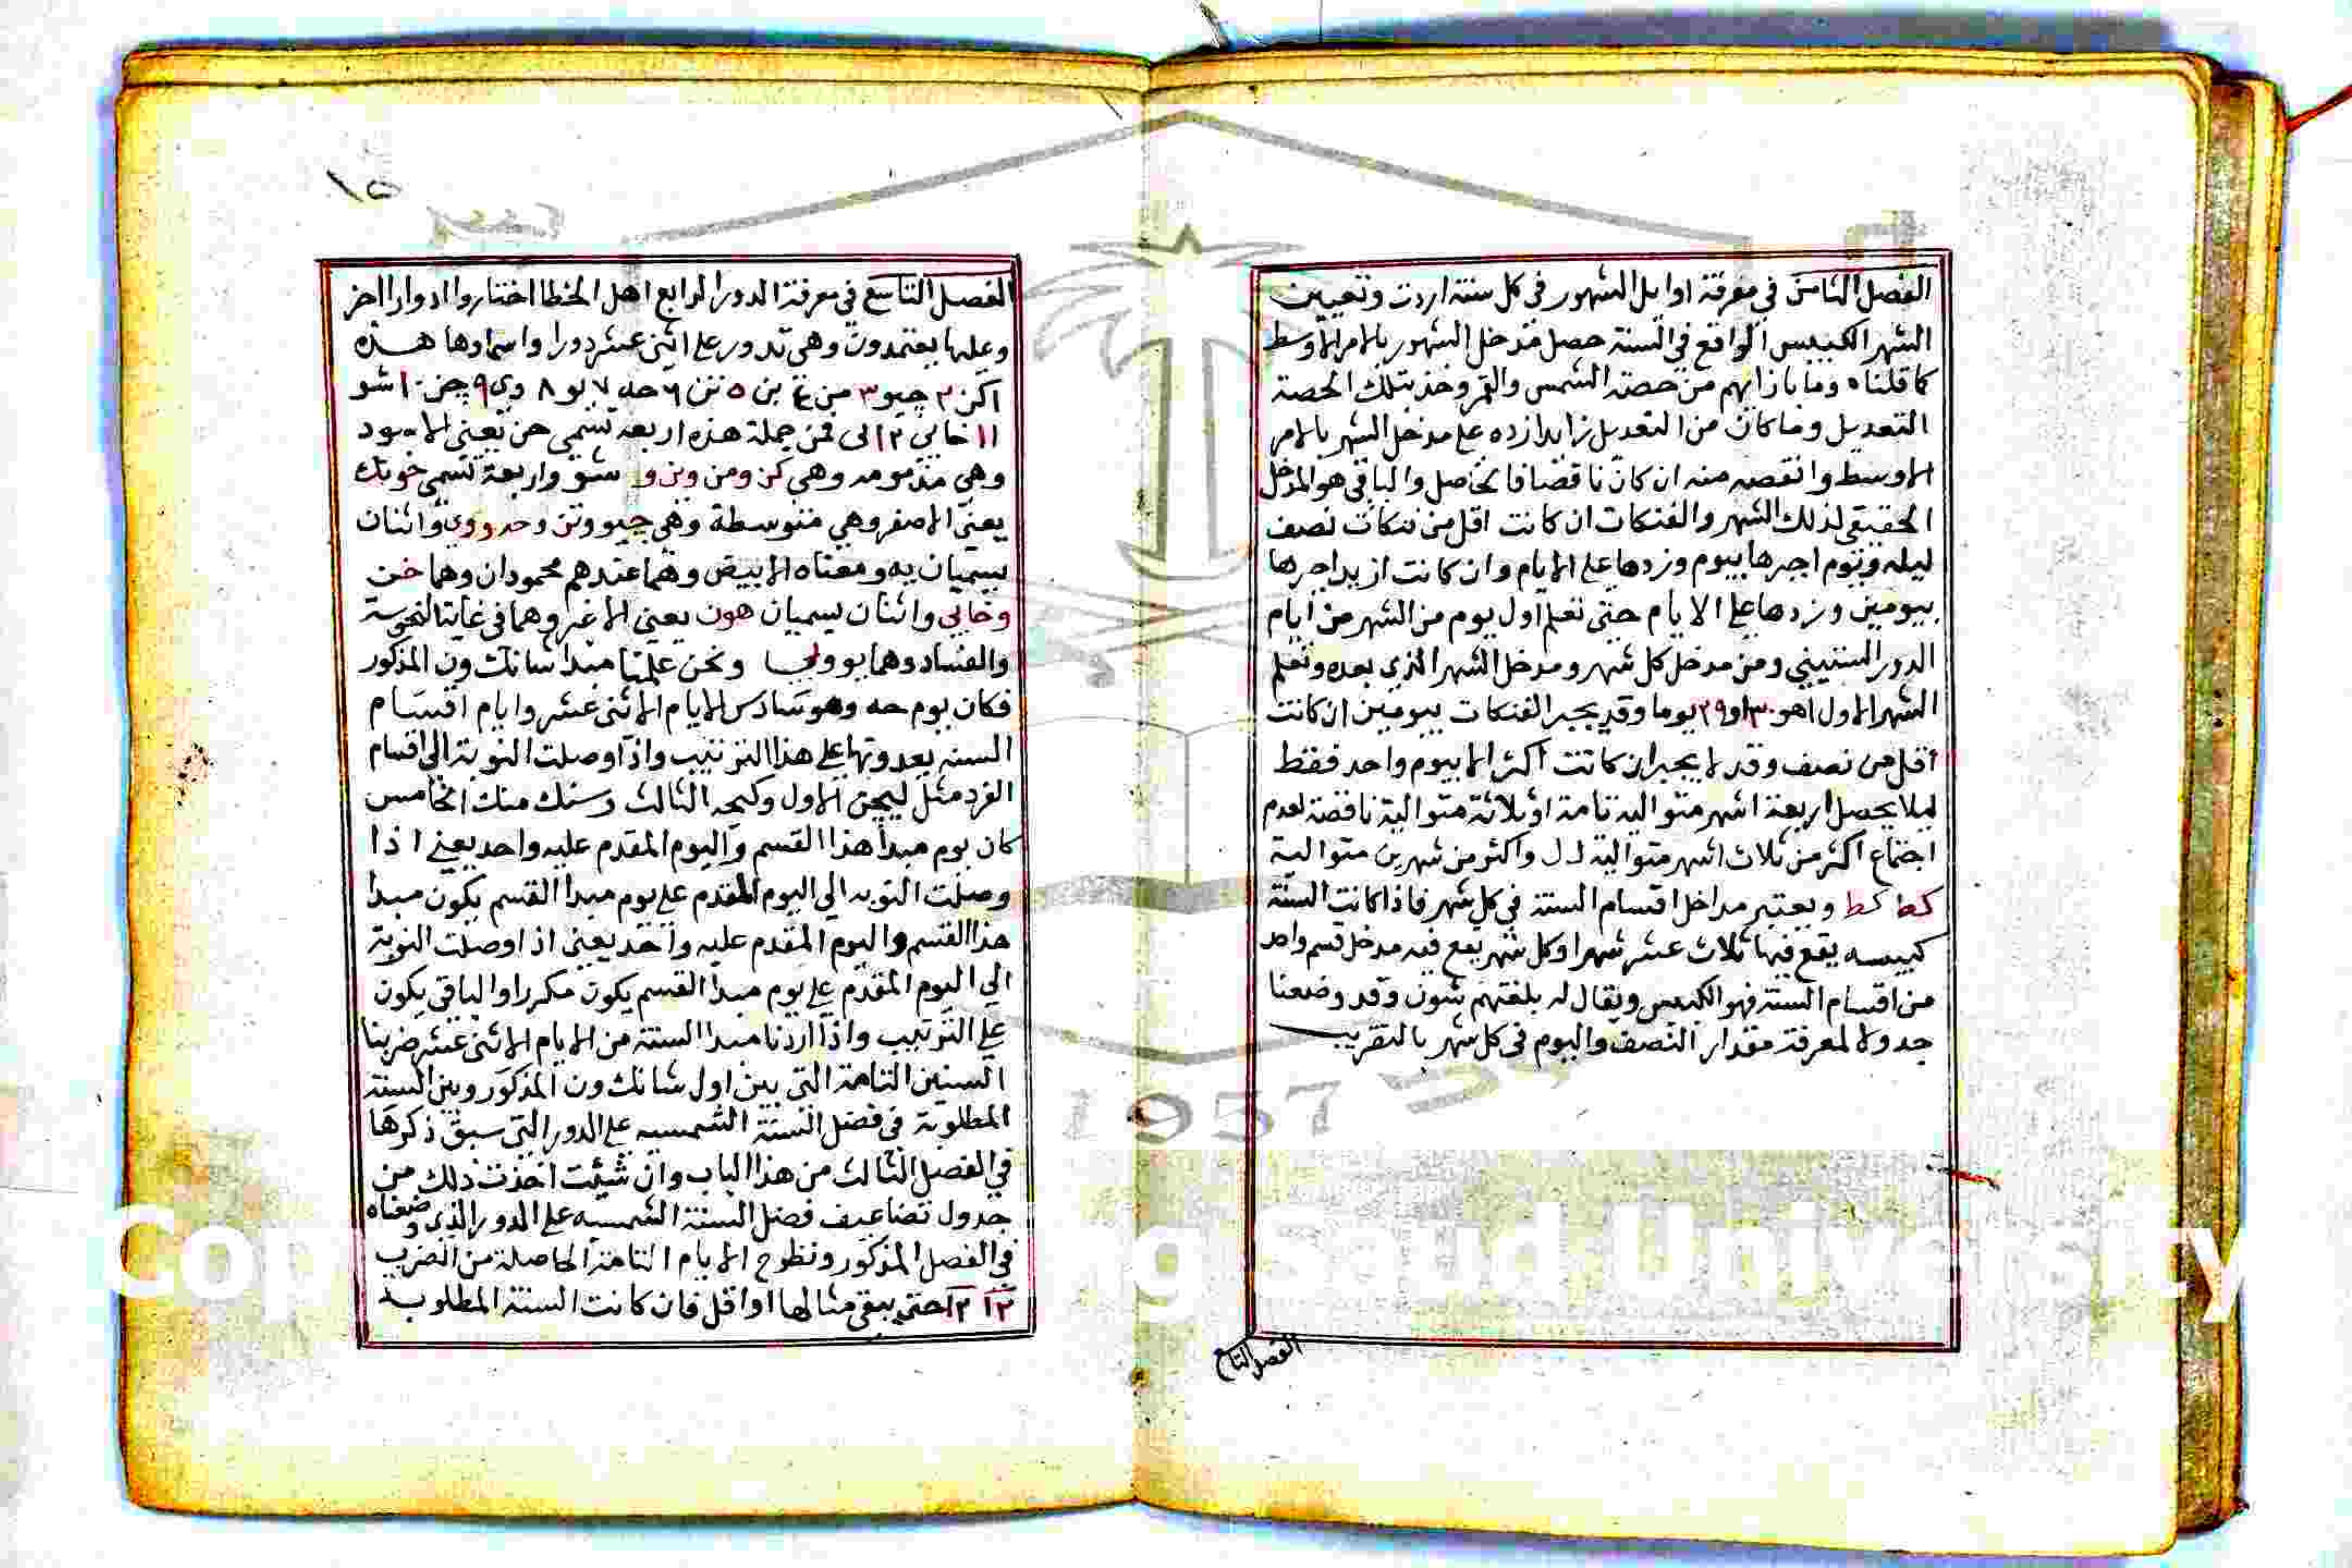 الفصل الثامن في معرفة اوايل الشهور في كل سنة اردت وتعيين
الشهر الكبيس الواقع في السنة حصل مدخل الشهور بالامر الاوسط
كما قلناه وما بازايهم من حصة الشمس والقمر وخذ بتلك الحصة
التعديل وما كان من التعديل زايدا زده على مدخل الشهر بالامر
الاوسط وانقصه منه ان كان ناقصا فالحاصل والباقي هو المدخل
الحقيقي لذلك الشهر والفنكات ان كانت اقل من فنكات نصف
ليله ويوم اجبرها بيوم وزدها على الايام وان كانت ازيد اجبرها
بيومين وزدها على الايام حتى تعلم اول يوم من الشهر من ايام
الدور الستيني ومن مدخل كل شهر ومدخل الشهر الذي بعده وتعلم
الشهر الاول اهو ٣٠ او ٢٩ يوما وقد يجبر الفنكات بيومين ان كانت
اقل من نصف وقد لا يجبر ان كانت اكثر الا بيوم واحد فقط
ليلا يحصل اربعة اشهر متوالية تامة او ثلاثة متوالية ناقصة لعدم
اجتماع اكثر من ثلاث اشهر متوالية ل ل واكثر من شهرين متوالية
كط كط ويعتبر مداخل اقسام السنة في كل شهر فاذا كانت السنة
كبيسه يقع فيها ثلاث عشر شهرا وكل شهر يقع فيه مدخل قسم واحد
من اقسام السنة فهو الكبيس ويقال له بلغتهم شون وقد وضعنا
جدولا لمعرفة مقدار النصف واليوم في كل شهر بالتقريب
الفصل التاسع
١٥
الفصل التاسع في معرفة الدور الرابع اهل الخطا اختاروا ادوارا اخر
وعليها يعتمدون وهي تدور على اثني عشر دورا واسماوها هذه
اكن ٢ چيو ٣ من ٤ بن ٥ تن ٦ حه ٧ لو ٨ وي ٩ چن ١٠ شو
١١ خابي ١٢ لى فمن جملة هذه اربعة تسمى حن يعني الاسود
وهي مذمومه وهي كن ومن وبن و شو واربعة تسمى خونك
يعني الاصفر وهي متوسطة وهي چيو وتن وحه ووي واثنان
يسميان به ومعناه الابيض وهما عندهم محمودان وهما خن
وخابي واثنان يسميان هون يعني الاغبر وهما في غاية النحوسة
والفساد وهما بو ولي ونحن علمنا مبدا شانك ون المذكور
فكان يوم حه وهو سادس الايام الاثنى عشر وايام اقسام
السنة يعدونها على هذا الترتيب واذا وصلت النوبة الى اقسام
الفرد مثل ليجن الاول وكيجه الثالث وسنك منك الخامس
كان يوم مبدأ هذا القسم واليوم المقدم عليه واحد يعني اذا
وصلت النوبه الي اليوم المقدم على يوم مبدا القسم يكون مبدا
هذا القسم واليوم المقدم عليه واحد يعني اذا وصلت النوبة
الي اليوم المقدم على يوم مبدأ القسم يكون مكررا والباقي يكون
على الترتيب واذا اردنا مبدا السنة من الايام الاثنى عشر ضربنا
السنين التامة التي بين اول شانك ون المذكور وبين السنة
المطلوبة في فضل السنة الشمسيه على الدور التي سبق ذكرها
في الفصل الثالث من هذا الباب وان شيئت اخذت ذلك من
جدول تضاعيف فضل السنة الشمسيه على الدور الذي وضعناه
في الفصل المذكور ونطرح الايام التامة الحاصلة من الضرب
١٢ ١٢ حتى يبقى مثالها او اقل فان كانت السنة المطلوبة
1957
Copy g Saud University